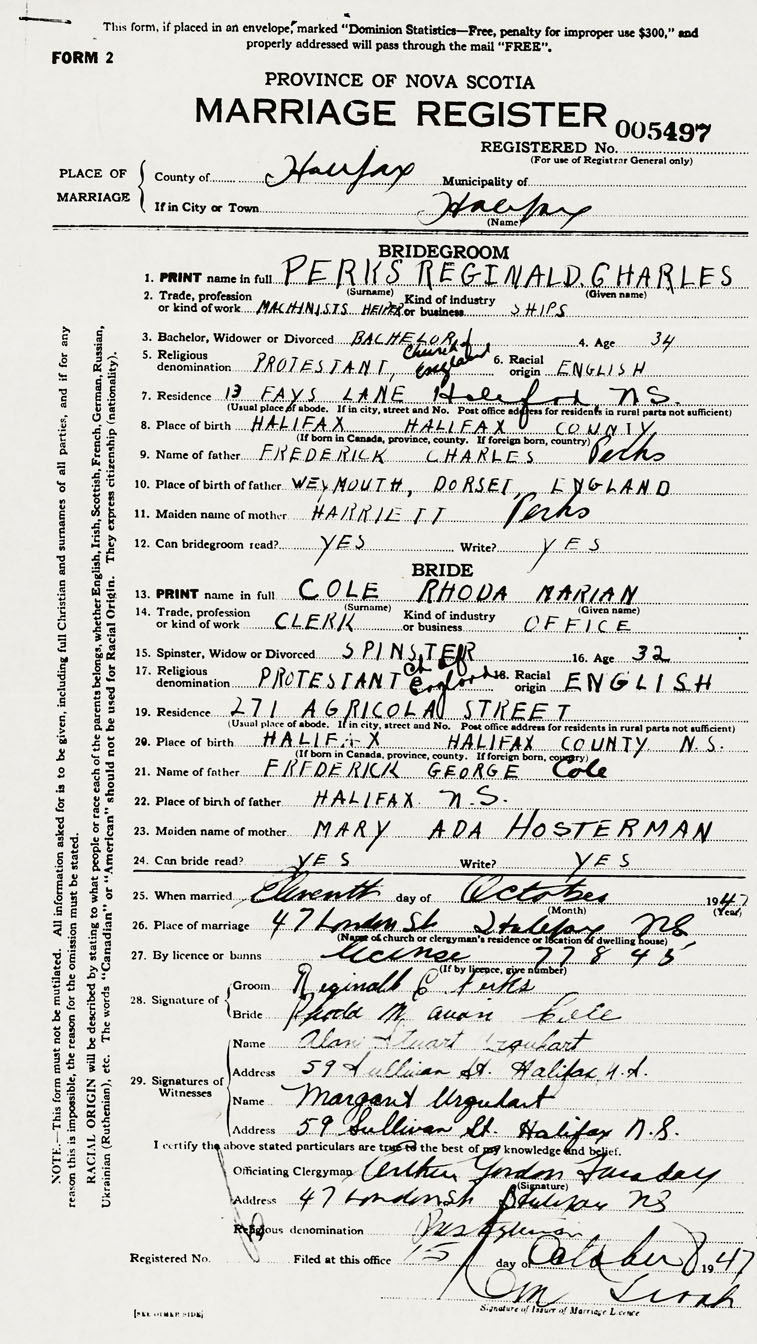 This form, if placed in an envelope, marked “Dominion Statistics—Free, penalty for improper use $300,” and
properly addressed will pass through the mail “FREE”.
FORM 2
PROVINCE OF NOVA SCOTIA
MARRIAGE REGISTER 005497
REGISTERED No.
(For use of Registrar General only)
PLACE OF MARRIAGE
County of Halifax Municipality of
If in City or Town Halifax
(Name)
BRIDEGROOM
1. PRINT name in full PERKS REGINALD CHARLES
(Surname) (Given name)
2. Trade, profession or kind of work MACHINISTS HELPER Kind of industry or business SHIPS
3. Bachelor, Widower or Divorced BACHELOR 4. Age 34
5. Religious denomination PROTESTANT, Church of England 6. Racial origin ENGLISH
7. Residence 13 FAYS LANE Halifax, N.S.
(Usual place of abode. If in city, street and No. Post office address for residents in rural parts not sufficient)
8. Place of birth HALIFAX HALIFAX COUNTY
(If born in Canada, province, county. If foreign born, country)
9. Name of father FREDERICK CHARLES Perks
10. Place of birth of father WEYMOUTH, DORSET, ENGLAND
11. Maiden name of mother HARRIETT Perks
12. Can bridegroom read? YES Write? YES
BRIDE
13. PRINT name in full COLE RHODA MARIAN
(Surname) (Given name)
14. Trade, profession or kind of work CLERK Kind of industry or business OFFICE
15. Spinster, Widow or Divorced SPINSTER 16. Age 32
17. Religious denomination PROTESTANT Ch of England 18. Racial origin ENGLISH
19. Residence 271 AGRICOLA STREET
(Usual place of abode. If in city, street and No. Post office address for residents in rural parts not sufficient)
20. Place of birth HALIFAX HALIFAX COUNTY N.S.
(If born in Canada, province, county. If foreign born, country)
21. Name of father FREDERICK GEORGE Cole
22. Place of birth of father HALIFAX N.S.
23. Maiden name of mother MARY ADA HOSTERMAN
24. Can bride read? YES Write? YES
25. When married Eleventh day of October 1947
(Month) (Year)
26. Place of marriage 47 London St Halifax NS
(Name of church or clergyman's residence or location of dwelling house)
27. By licence or banns license 77845
(If by licence, give number)
28. Signature of
Groom Reginald C Perks
Bride Rhoda Marian Cole
29. Signatures of Witnesses
Name Alan Stuart Urquhart
Address 59 Sullivan St. Halifax N.S.
Name Margaret Urquhart
Address 59 Sullivan St. Halifax N.S.
I certify the above stated particulars are true to the best of my knowledge and belief.
Officiating Clergyman Arthur Gordon
(Signature)
Address 47 London St Halifax NS
Religious denomination Presbyterian
Registered No. Filed at this office 15 day of October 1947
Signature of Issuer of Marriage Licence
[SEE OTHER SIDE]
NOTE.—This form must not be mutilated. All information asked for is to be given, including full Christian and surnames of all parties, and if for any
reason this is impossible, the reason for the omission must be stated.
RACIAL ORIGIN will be described by stating to what people or race each of the parents belongs, whether English, Irish, Scottish, French, German, Russian,
Ukrainian (Ruthenian), etc. The words “Canadian” or “American” should not be used for Racial Origin. They express citizenship (nationality).